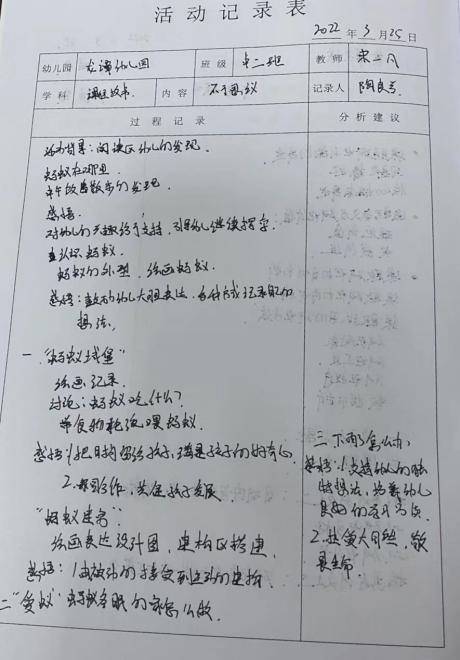 活动记录表
2022 年 3 月 25 日
幼儿园 龙潭幼儿园 班级 中二班 教师 宋一凡
学科 课程故事 内容 不可思议 记录人 陶良芳
过程记录 分析建议
活动背景：阅读区幼儿的发现.
蚂蚁在哪里.
午饭后散步的发现.
感悟：
对幼儿的兴趣给予支持，引导幼儿继续探究.
1. 认识蚂蚁.
蚂蚁的外型、绘画蚂蚁.
感悟：鼓励幼儿大胆表达，各种方式记录自己的
想法.
一、“蚂蚁城堡”
绘画记录.
讨论：蚂蚁吃什么？
带食物投喂蚂蚁.
感悟：1把时间留给孩子，满足孩子的好奇心.
2. 家园合作，共促孩子发展.
“蚂蚁建窝”：
绘画表达设计图，建构区搭建.
感悟：1由被动的接受到主动的建构.
二“爱蚁”：蚂蚁冬眠的家怎么做.
三、下雨了怎么办
感悟：1.支持幼儿的独
特想法，培养幼儿
良好的学习品质.
2.热爱大自然，敬
畏生命.